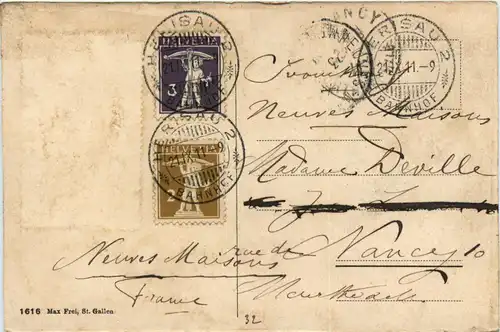 HERISAU 2
21.IX.11.-9
BAHNHOF
HELVETIA
3
HERISAU 2
21.IX.11.-9
BAHNHOF
HELVETIA
2
NANCY
HERISAU 2
11.-9
BAHNHOF
Neuves Maisons
Madame Déville
rue de Nancy 10
Neuves Maisons
France
Meurthe
1616 Max Frei, St. Gallen
32